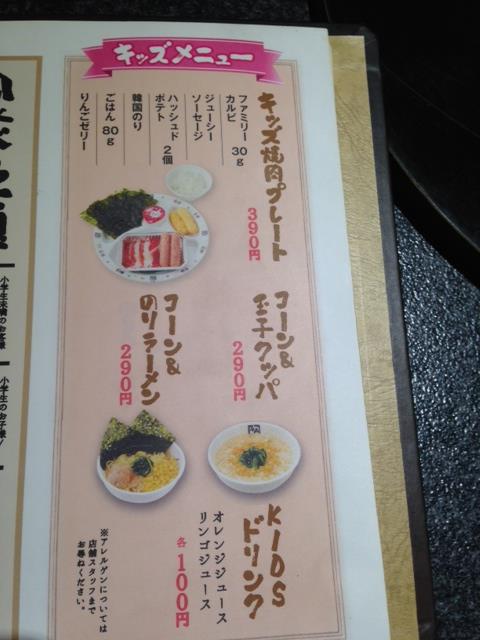 キッズメニュー
キッズ焼肉プレート
390円
ファミリー
カルビ 30g
ジューシー
ソーセージ
ハッシュド
ポテト 2個
韓国のり
ごはん 80g
りんごゼリー
コーン&
玉子クッパ
290円
コーン&
のりラーメン
290円
KIDS
ドリンク
オレンジジュース
リンゴジュース
各100円
※アレルゲンについては
店舗スタッフまで
お尋ねください。
小学生未満のお客様
小学生のお子様/